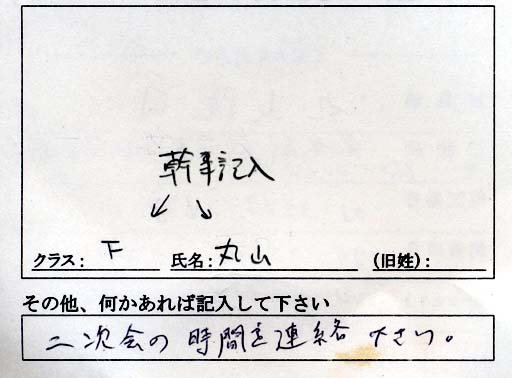 幹事記入
クラス: F 氏名: 丸山 (旧姓):
その他、何かあれば記入して下さい
二次会の時間を連絡下さい。